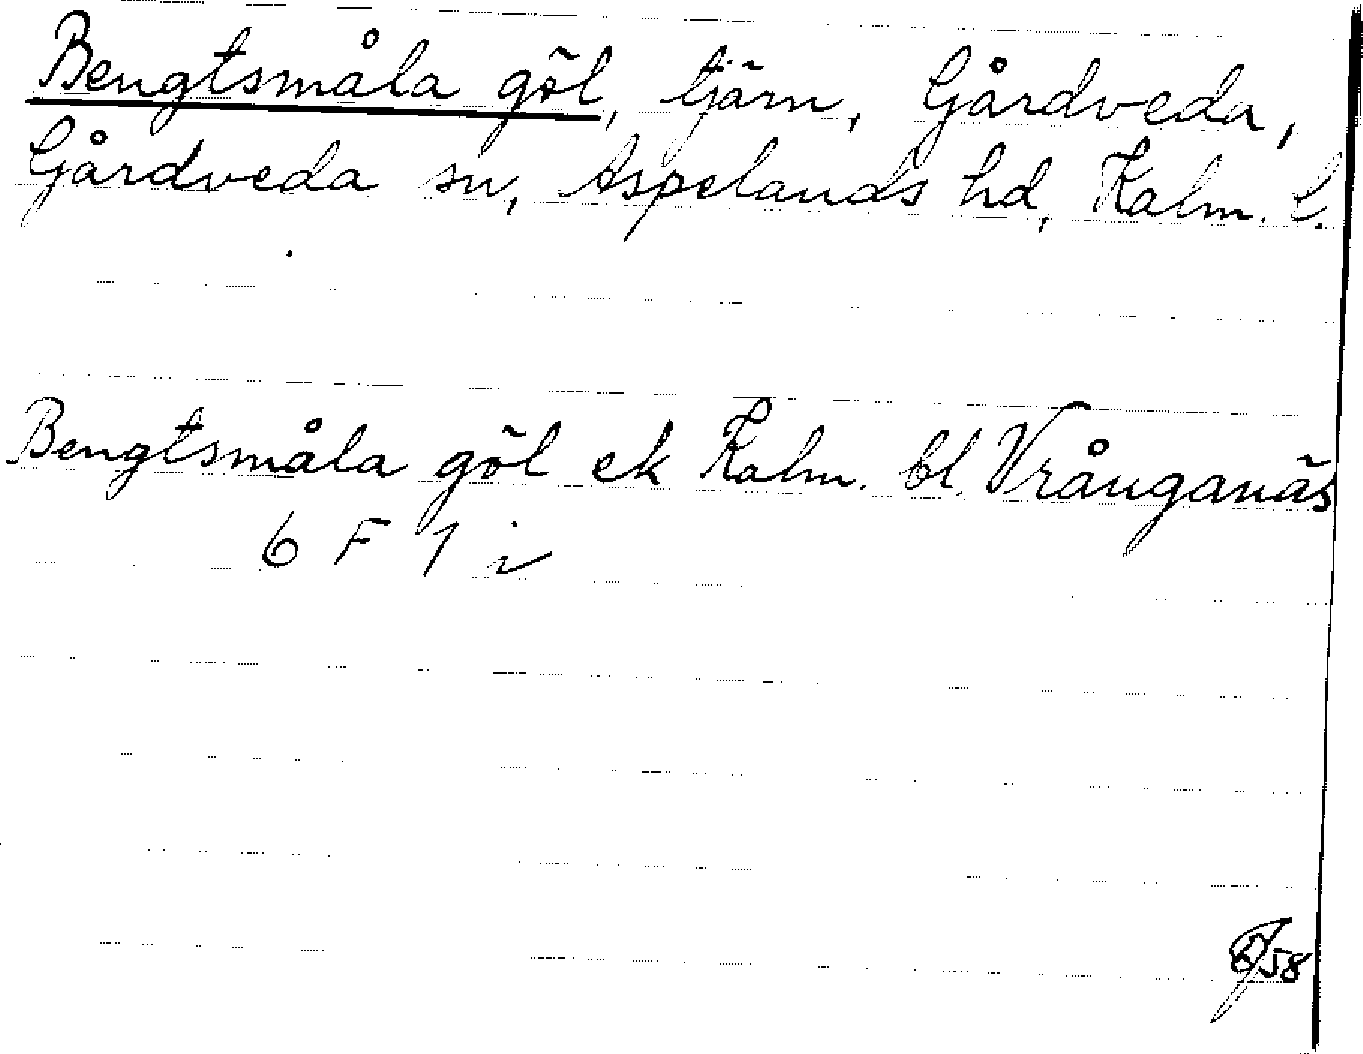 Bengtsmåla göl, tjärn, Gårdveda,
Gårdveda sn, Aspelands hd, Kalm. l.
Bengtsmåla göl ek Kalm. bl. Vrånganäs
6 F 1 i
58